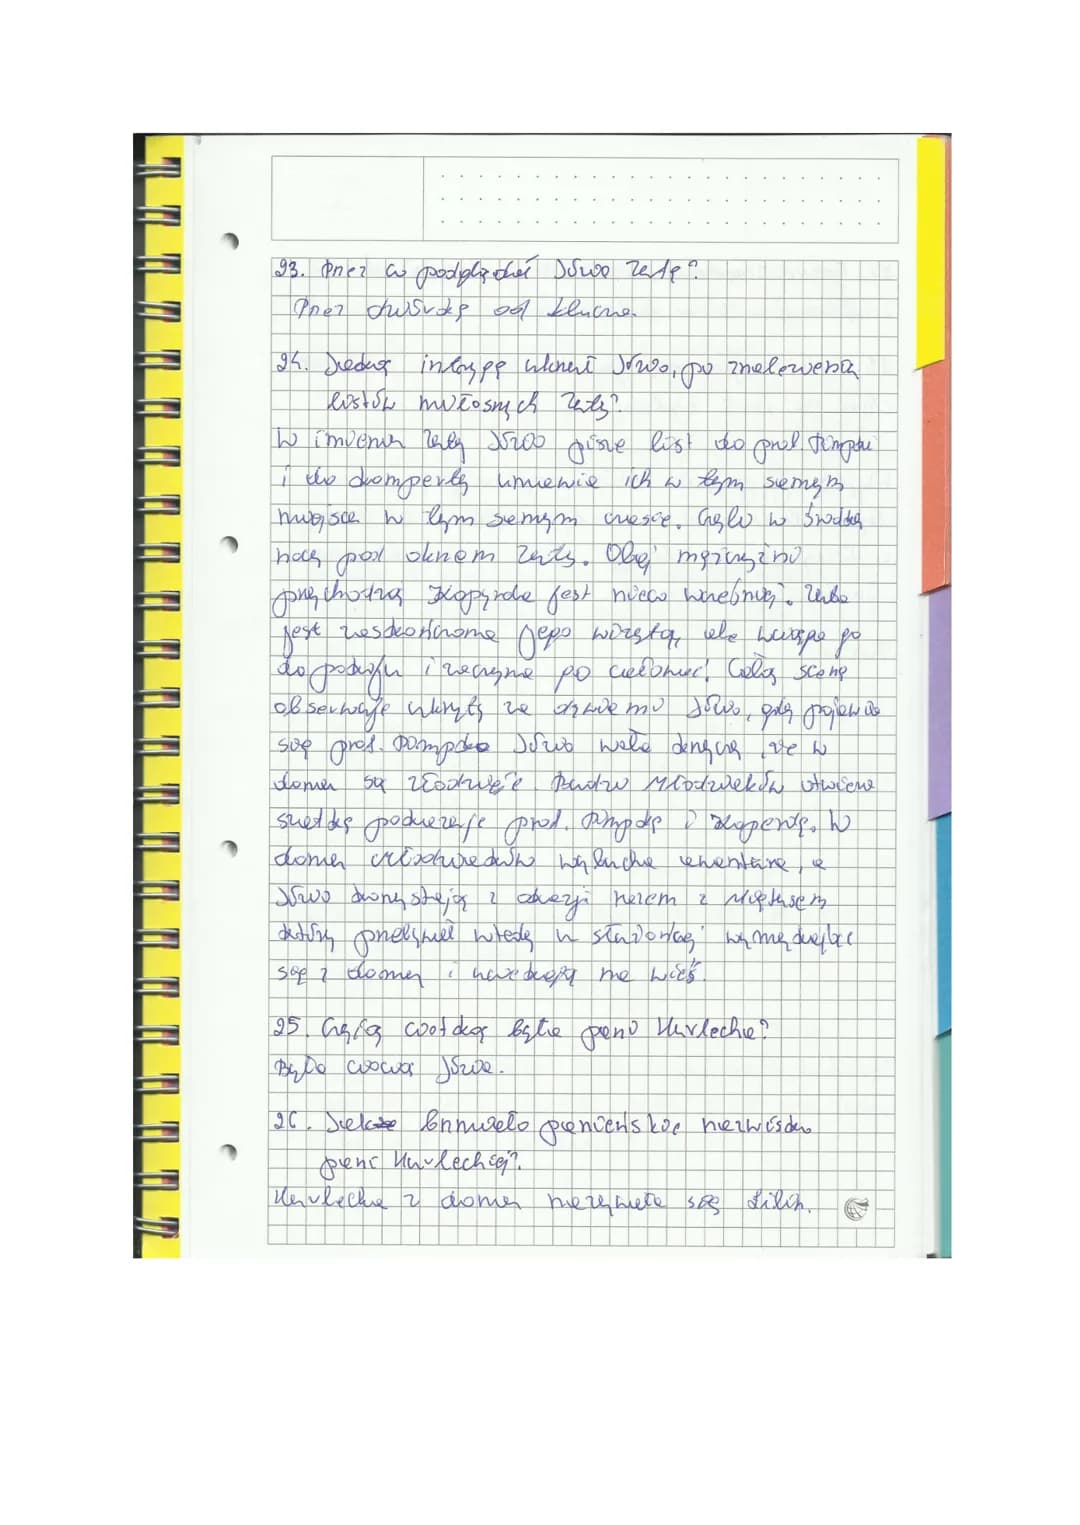 23. Przez co podglądał Józio Zutę?
Przez dziurkę od klucza.
24. Jaką intrygę uknuł Józio, po znalezieniu
listów miłosnych Zuty?
W imieniu Zuty Józio pisze list do prof. Pimpki
i do Kopyrdy umawia ich w tym samym
miejscu w tym samym czasie. Czyli w środku
nocy pod oknem Zuty. Obaj mężczyźni
przychodzą Kopyrda jest nieco wcześniej. Zuta
jest zaskoczona jego wizytą, ale wciąga go
do pokoju i zaczyna go całować. Całą scenę
obserwuje ukryty za drzwiami Józio, gdy pojawia
się prof. Pimpko Józio woła krzyczą, że w
domu są złodzieje. Państwo Młodziaków
prof. Pimpkę i Kopyrdę. W
domu Młodziaków wybucha awantura, a
Józio korzystając z okazji razem z Miętusem
który wtedy wymykając
się z domu i na wieś.
25. Czyją ciotką była pani Hurlecka?
Była ciocią Józia.
26. Jakie brzmiało panieńskie nazwisko
pani Hurleckiej?
Hurlecka z domu nazywała się Lilin.